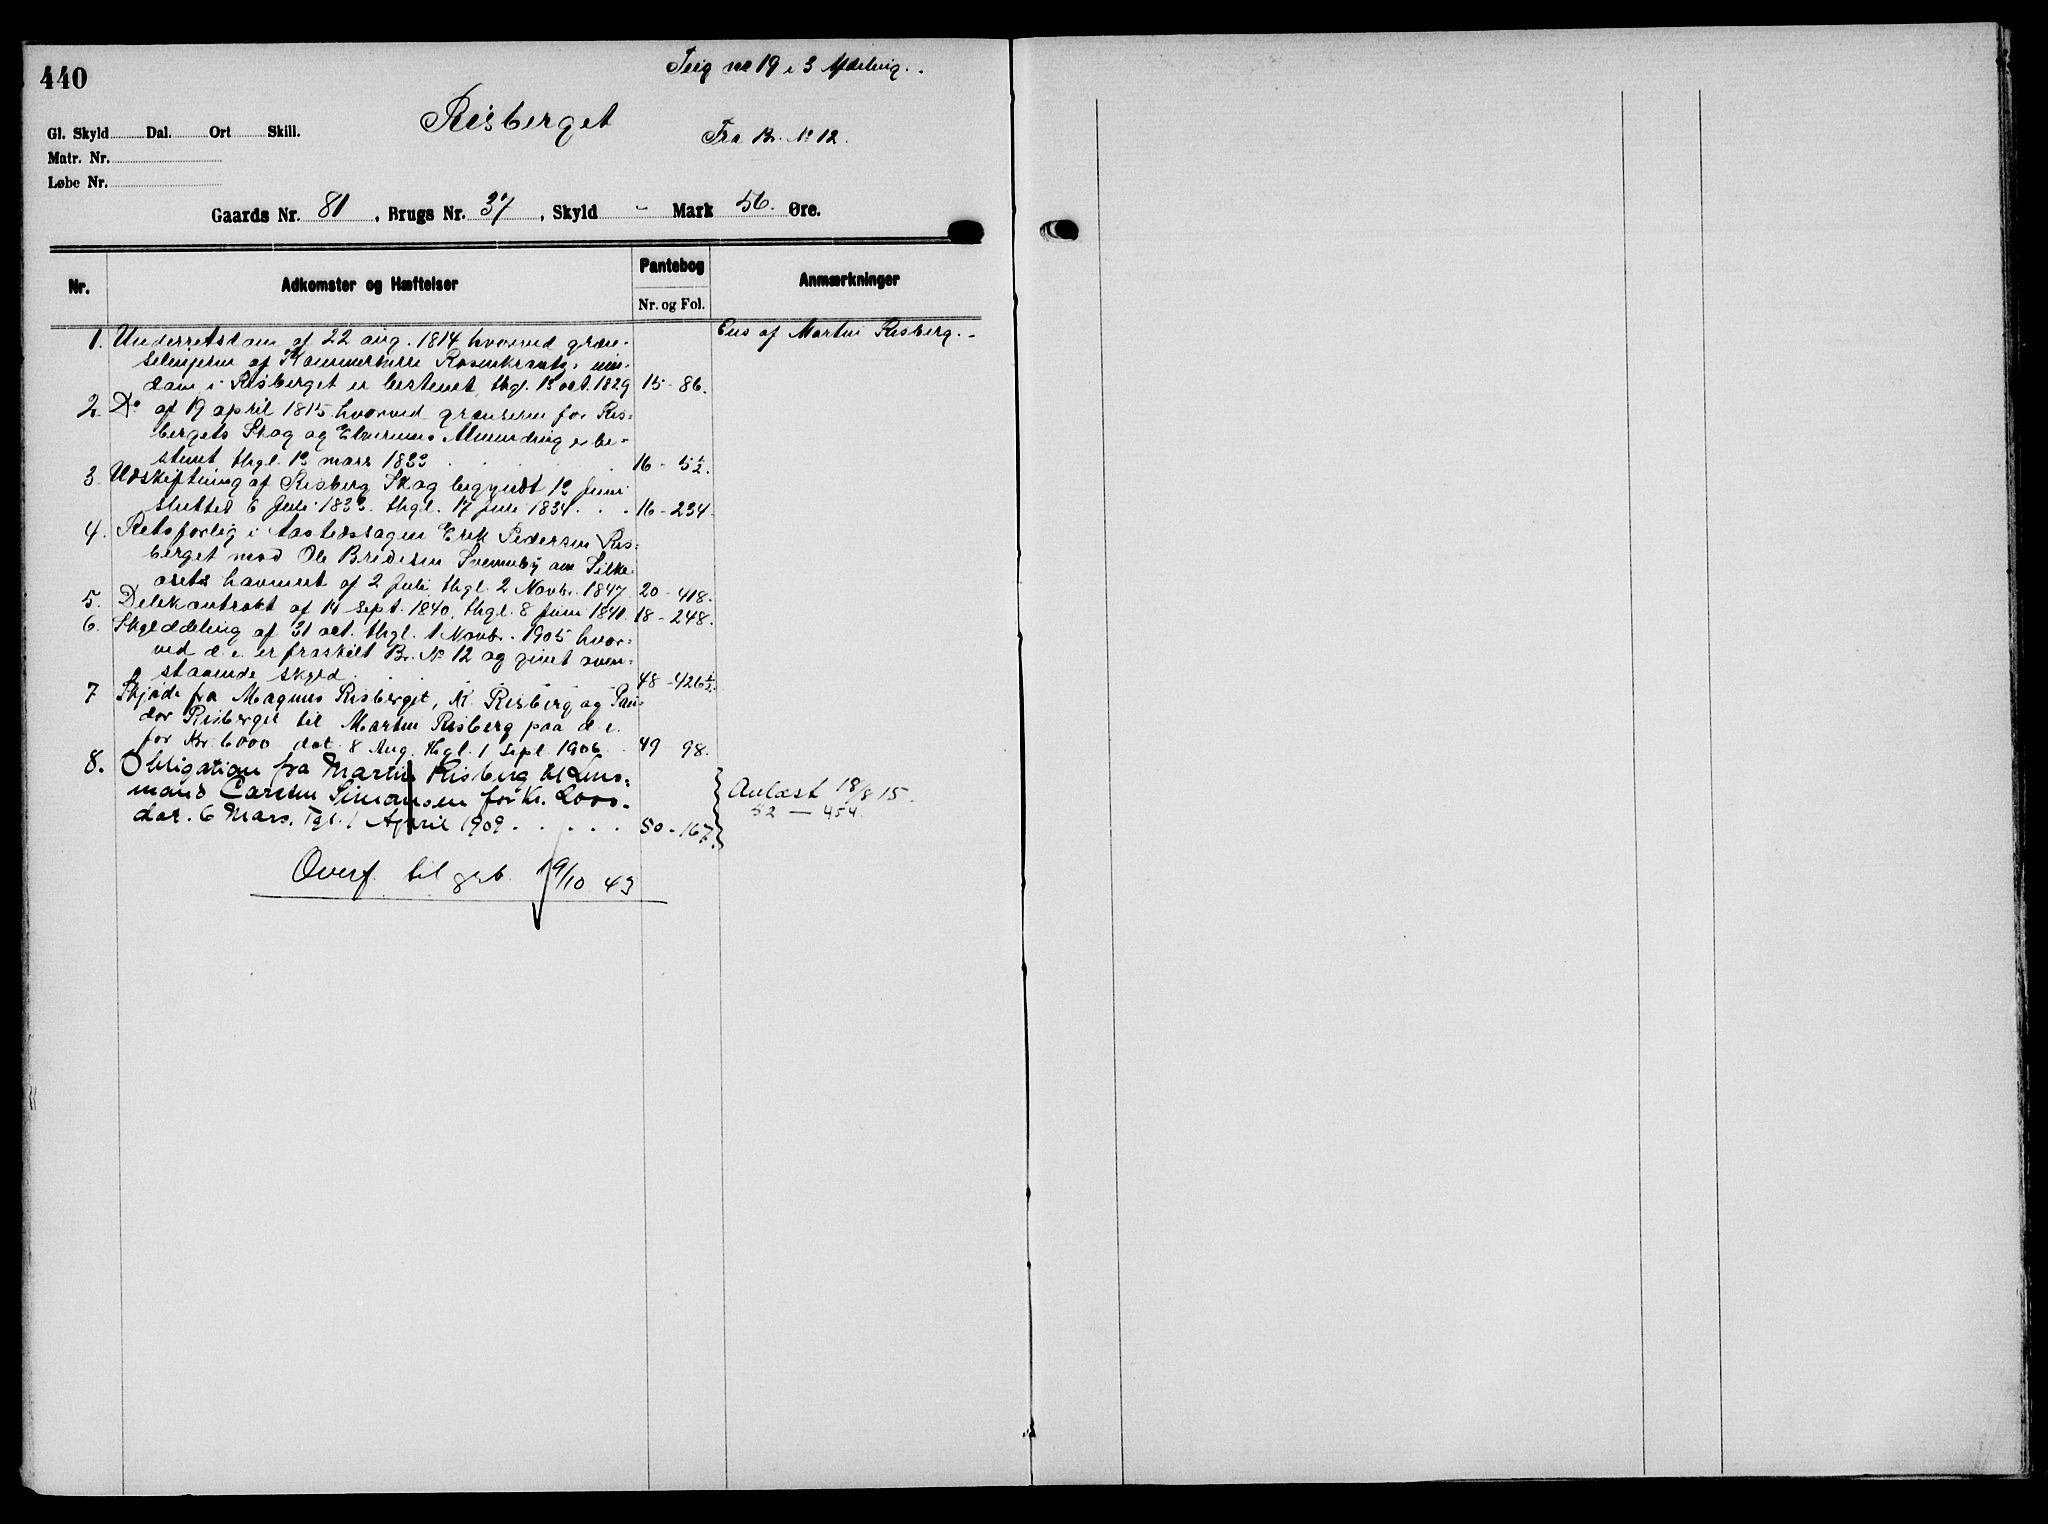 440
Teig no 19 i 3 Afdeling.
Risberget
Fra Br. No 12.
Gl. Skyld Dal. Ort Skill.
Matr. Nr.
Løbe Nr.
Gaards Nr. 81, Brugs Nr. 37, Skyld - Mark 56 Øre.
Nr. Adkomster og Hæftelser Pantebog Nr. og Fol. Anmærkninger
1. Underretsdom af 22 aug. 1814 hvorved græn- Eies af Martin Risberg.-
selinjerne af Kammerherre Rosenkrantz's eien-
dom i Risberget er bestemt, thgl. 13 oct. 1829 15-86.
2. Do af 19 april 1815 hvorved grænserne for Ris-
bergets Skog og Elverums Almending er be-
stemt thgl. 13 mars 1833 16-5½.
3. Udskiftning af Risberg Skog begyndt 13 Juni
sluttet 6 Juli 1833 thgl. 17 Juli 1834 16-234
4. Retsforlig i Aastedssagen Erik Pedersen Ris-
berget mod Ole Bredesen Svenneby om Silke-
osets havnert af 2 Juli thgl. 2 Novbr. 1847 20-418.
5. Delekontrakt af 14 sept. 1840, thgl. 8 Juni 1841. 18-248.
6. Skylddeling af 31 oct. thgl. 1 Novbr. 1905 hvor-
ved d.e. er fraskilt Br. No 12 og givet oven-
staaende skyld 48-426½.
7 Skjøde fra Magnus Risberget, M. Risberg og Pau-
dor Risberget til Martin Risberg paa d.e.
for Kr. 6000 dat. 8 Aug. thgl. 1 Sept. 1906 49 98.
8. Obligation fra Martin Risberg til Lens-
mand Carsten Simonsen for Kr. 2000- Avlæst 18/8 15.
dat. 6 Mars, Tgl. 1 April 1909 50-167. 52-454.
Overf. til grb. 19/10 43